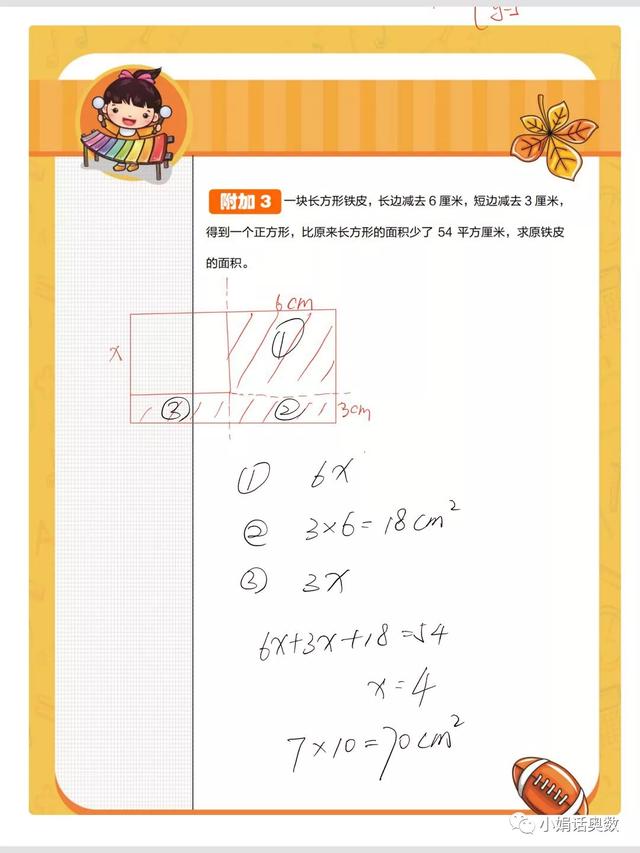 附加 3 一块长方形铁皮，长边减去 6 厘米，短边减去 3 厘米，
得到一个正方形，比原来长方形的面积少了 54 平方厘米，求原铁皮
的面积。
6cm
x
①
③ ② 3cm
① 6x
② 3×6=18cm²
③ 3x
6x+3x+18=54
x=4
7×10=70cm²
小娟话奥数